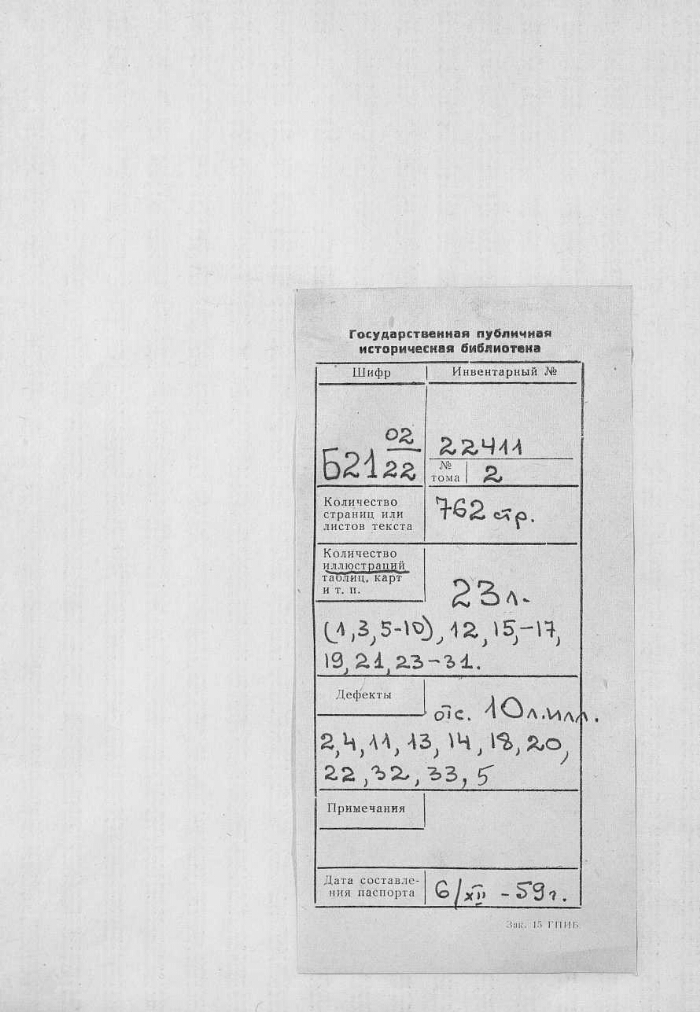 Государственная публичная
историческая библиотека
Шифр
Инвентарный №
Б21 02/22
22411
№ тома 2
Количество
страниц или
листов текста
762 стр.
Количество
иллюстраций
таблиц, карт
и т. п.
23 л.
(1,3,5-10), 12, 15,-17,
19, 21, 23-31.
Дефекты
отс. 10 л.илл.
2,4,11,13,14,18,20,
22,32,33,5
Примечания
Дата составле-
ния паспорта
6/XII - 59 г.
Зак. 15 ГПИБ